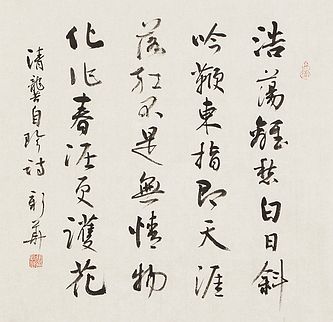 浩蕩離愁白日斜
吟鞭東指即天涯
落紅不是無情物
化作春泥更護花
清龔自珍詩